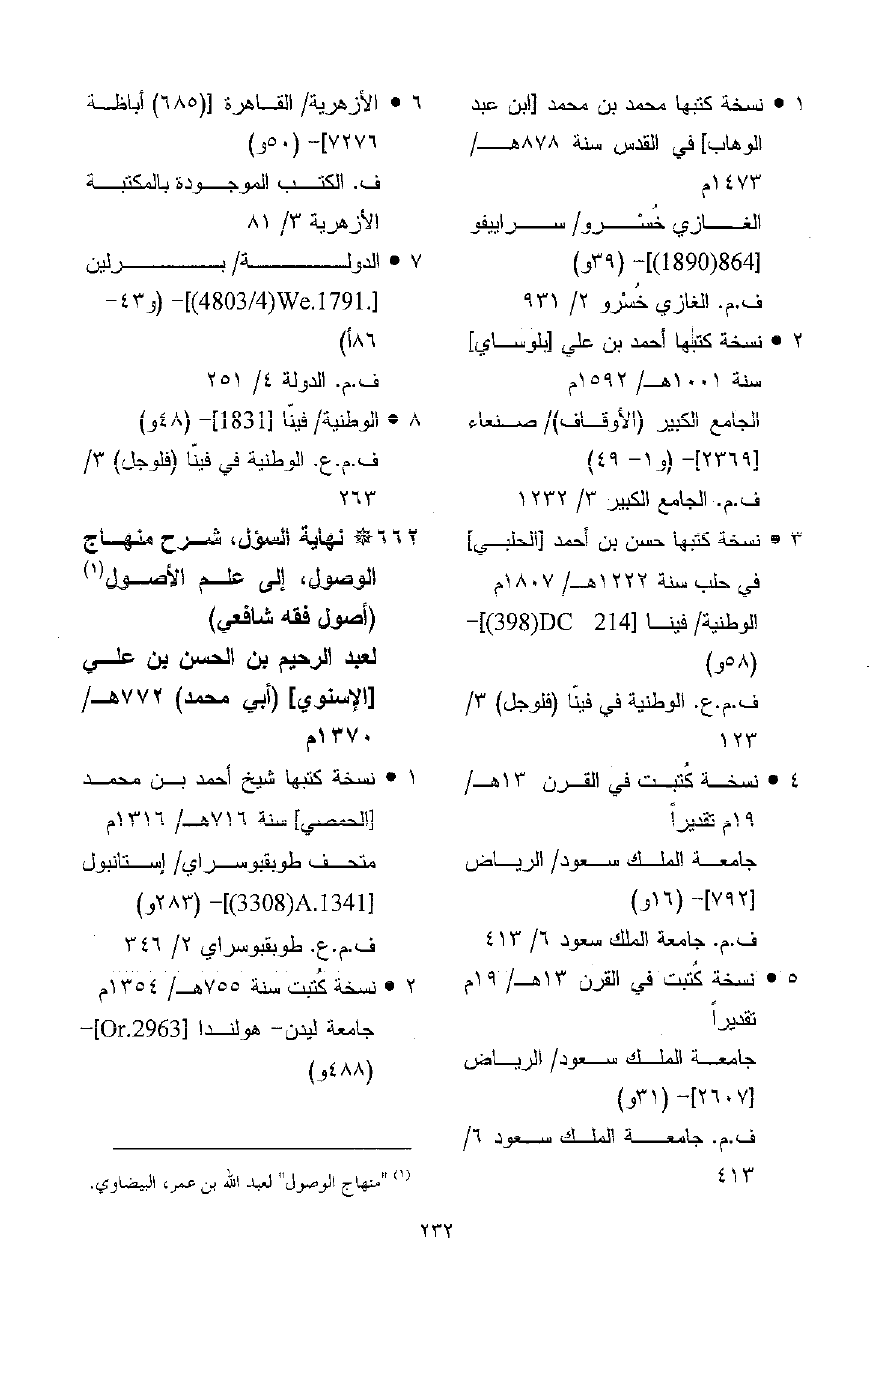 ١ • نسخة كتبها محمد بن محمد [ابن عبد
الوهاب] في القدس سنة ٨٧٨هـ/
١٤٧٣م
الغازي خُسْرو/ سراييفو
[864(1890)]- (٣٩و)
ف.م. الغازي خُسْرو ٢/ ٩٣١
٢ • نسخة كتبها أحمد بن علي [بلوساي]
سنة ١٠٠١هـ/ ١٥٩٢م
الجامع الكبير (الأوقاف)/ صنعاء
[٢٣٦٩]- (و١- ٤٩)
ف.م. الجامع الكبير ٣/ ١٢٣٢
٣ • نسخة كتبها حسن بن أحمد [الحلبي]
في حلب سنة ١٢٢٢هـ/ ١٨٠٧م
الوطنية/ فينا [398)DC 214)]-
(٥٨و)
ف.م.ع. الوطنية في فينّا (فلوجل) ٣/
١٢٣
٤ • نسخة كُتبت في القرن ١٣هـ/
١٩م تقديراً
جامعة الملك سعود/ الرياض
[٧٩٢]- (١٦و)
ف.م. جامعة الملك سعود ٦/ ٤١٣
٥ • نسخة كُتبت في القرن ١٣هـ/ ١٩م
تقديراً
جامعة الملك سعود/ الرياض
[٢٦٠٧]- (٣١و)
ف.م. جامعة الملك سعود ٦/
٤١٣
٦ • الأزهرية/ القاهرة [(٦٨٥) أباظة
٧٢٧٦]- (٥٠و)
ف. الكتب الموجودة بالمكتبة
الأزهرية ٣/ ٨١
٧ • الدولة/ برلين
[.We.1791(4803/4)]- (و٤٣-
٨٦أ)
ف.م. الدولة ٤/ ٢٥١
٨ • الوطنية/ فينّا [1831]- (٤٨و)
ف.م.ع. الوطنية في فينّا (فلوجل) ٣/
٢٦٣
٦٦٢ ❊ نهاية السؤل، شرح منهاج
الوصول، إلى علم الأصول(١)
(أصول فقه شافعي)
لعبد الرحيم بن الحسن بن علي
[الإسنوي] (أبي محمد) ٧٧٢هـ/
١٣٧٠م
١ • نسخة كتبها شيخ أحمد بن محمد
[الحمصي] سنة ٧١٦هـ/ ١٣١٦م
متحف طوبقبوسراي/ إستانبول
[A.1341(3308)]- (٢٨٣و)
ف.م.ع. طوبقبوسراي ٢/ ٣٤٦
٢ • نسخة كُتبت سنة ٧٥٥هـ/ ١٣٥٤م
جامعة ليدن- هولندا [Or.2963]-
(٤٨٨و)
(١) "منهاج الوصول" لعبد الله بن عمر، البيضاوي.
٢٣٢